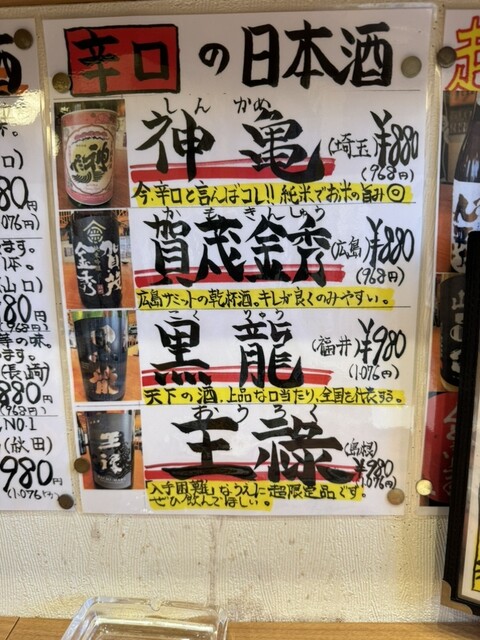 辛口の日本酒
しんかめ
神亀
(埼玉)¥880
(968円)
今、辛口と言えばコレ!!純米でお米の旨み◎
かもきんしゅう
賀茂金秀
(広島)¥880
(968円)
広島サミットの乾杯酒。キレが良くのみやすい。
こくりゅう
黒龍
(福井)¥980
(1.076円)
天下の酒、上品な口当たり、全国を代表する。
おうろく
王祿
(島根)
¥980
(1.076円)
「入手困難」なうえに超限定品です。
ぜひ飲んでほしい。
酒
(1.076円)
ます。
山口)
(968円)
の味。
ます。
(長崎)
880円
(968円)
NO.1
(秋田)
980円
(1.076円)